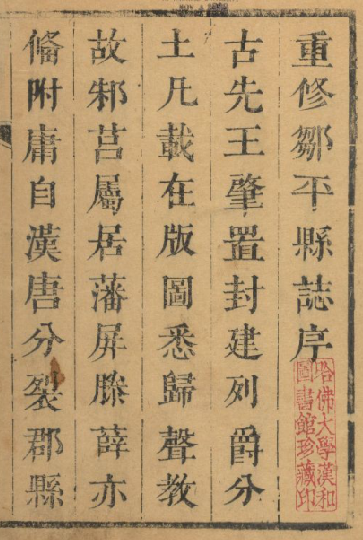 重修鄒平縣誌序
古先王肇置封建列爵分
土凡載在版圖悉歸聲教
故邾莒屬居藩屏滕薛亦
偹附庸自漢唐分裂郡縣
哈佛大學漢和
圖書館珍藏印